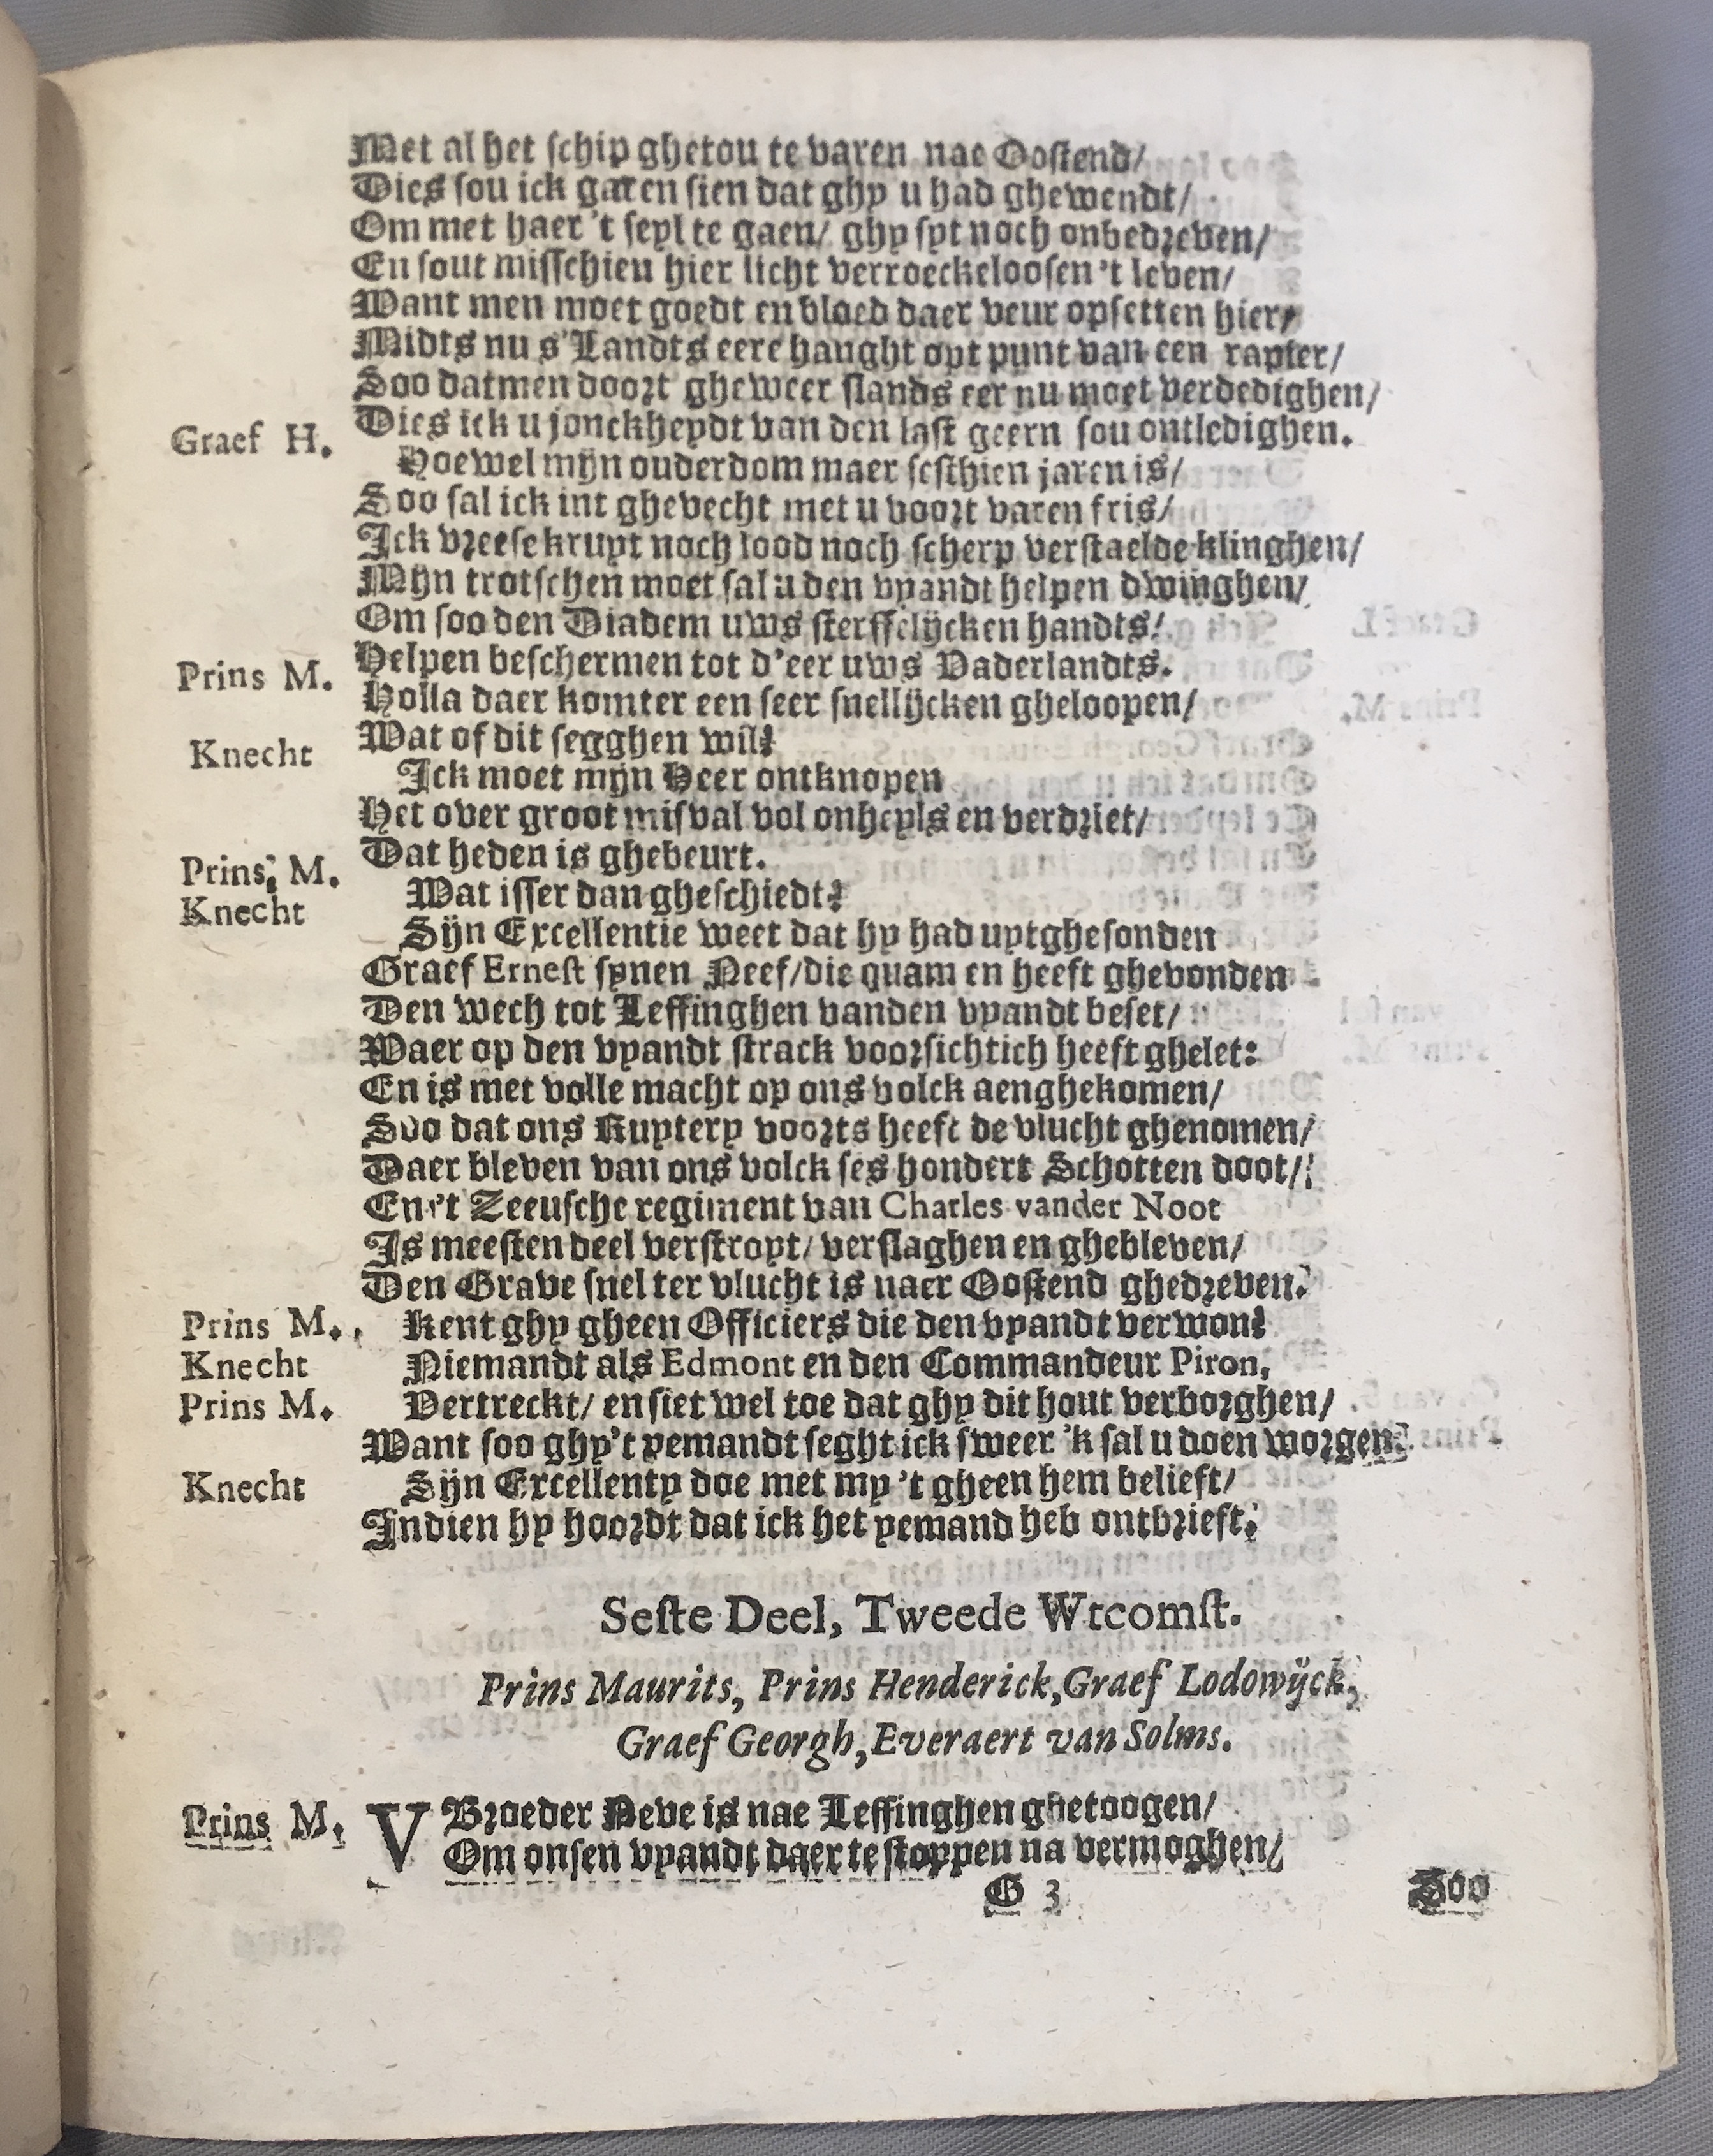 Met al het schip ghetou te varen nae Oostend/
Dies sou ick garen sien dat ghy u had ghewendt/
Om met haer 't seyl te gaen/ ghy syt noch onbedreven/
En sout misschien hier licht verroeckeloosen 't leven/
Want men moet goedt en bloed daer veur opsetten hier/
Midts nu s'Landts eere hanght opt punt van een rapier/
Soo datmen doort gheweer slands eer nu moet verdedighen/
Dies ick u jonckheydt van den last geern sou ontledighen.
Graef H. Hoewel mijn ouderdom maer sesthien jaren is/
Soo sal ick int ghevecht met u voort varen fris/
Ick vreese kruyt noch lood noch scherp verstaelde klinghen/
Mijn trotschen moet sal u den vyandt helpen dwinghen/
Om soo den Diadem uws sterffelijcken handts/
Helpen beschermen tot d'eer uws Vaderlandts.
Prins M. Holla daer komter een seer snellijcken gheloopen/
Wat of dit segghen wil?
Knecht Ick moet mijn Heer ontknopen
Het over groot misval vol onheyls en verdriet/
Dat heden is ghebeurt.
Prins M. Wat isser dan gheschiedt?
Knecht Sijn Excellentie weet dat hy had uytghesonden
Graef Ernest synen Neef/ die quam en heeft ghevonden
Den wech tot Leffinghen vanden vyandt beset/
Waer op den vyandt strack voorsichtich heeft ghelet:
En is met volle macht op ons volck aenghekomen/
Soo dat ons Ruytery voorts heeft de vlucht ghenomen/
Daer bleven van ons volck ses hondert Schotten doot/
En 't Zeeusche regiment van Charles vander Noot
Is meesten deel verstroyt/ verslaghen en ghebleven/
Den Grave snel ter vlucht is naer Oostend ghedreven.
Prins M. Kent ghy gheen Officiers die den vyandt verwon?
Knecht Niemandt als Edmont en den Commandeur Piron,
Prins M. Vertreckt/ en siet wel toe dat ghy dit hout verborghen/
Want soo ghy't yemandt seght ick sweer 'k sal u doen worgen.
Knecht Sijn Excellenty doe met my 't gheen hem belieft/
Indien hy hoordt dat ick het yemand heb ontbrieft.
Seste Deel, Tweede Wtcomst.
Prins Maurits, Prins Henderick, Graef Lodowijck,
Graef Georgh, Everaert van Solms.
Prins M. V Broeder Neve is nae Leffinghen ghetoogen/
Om onsen vyandt daer te stoppen na vermoghen/
G 3 Soo